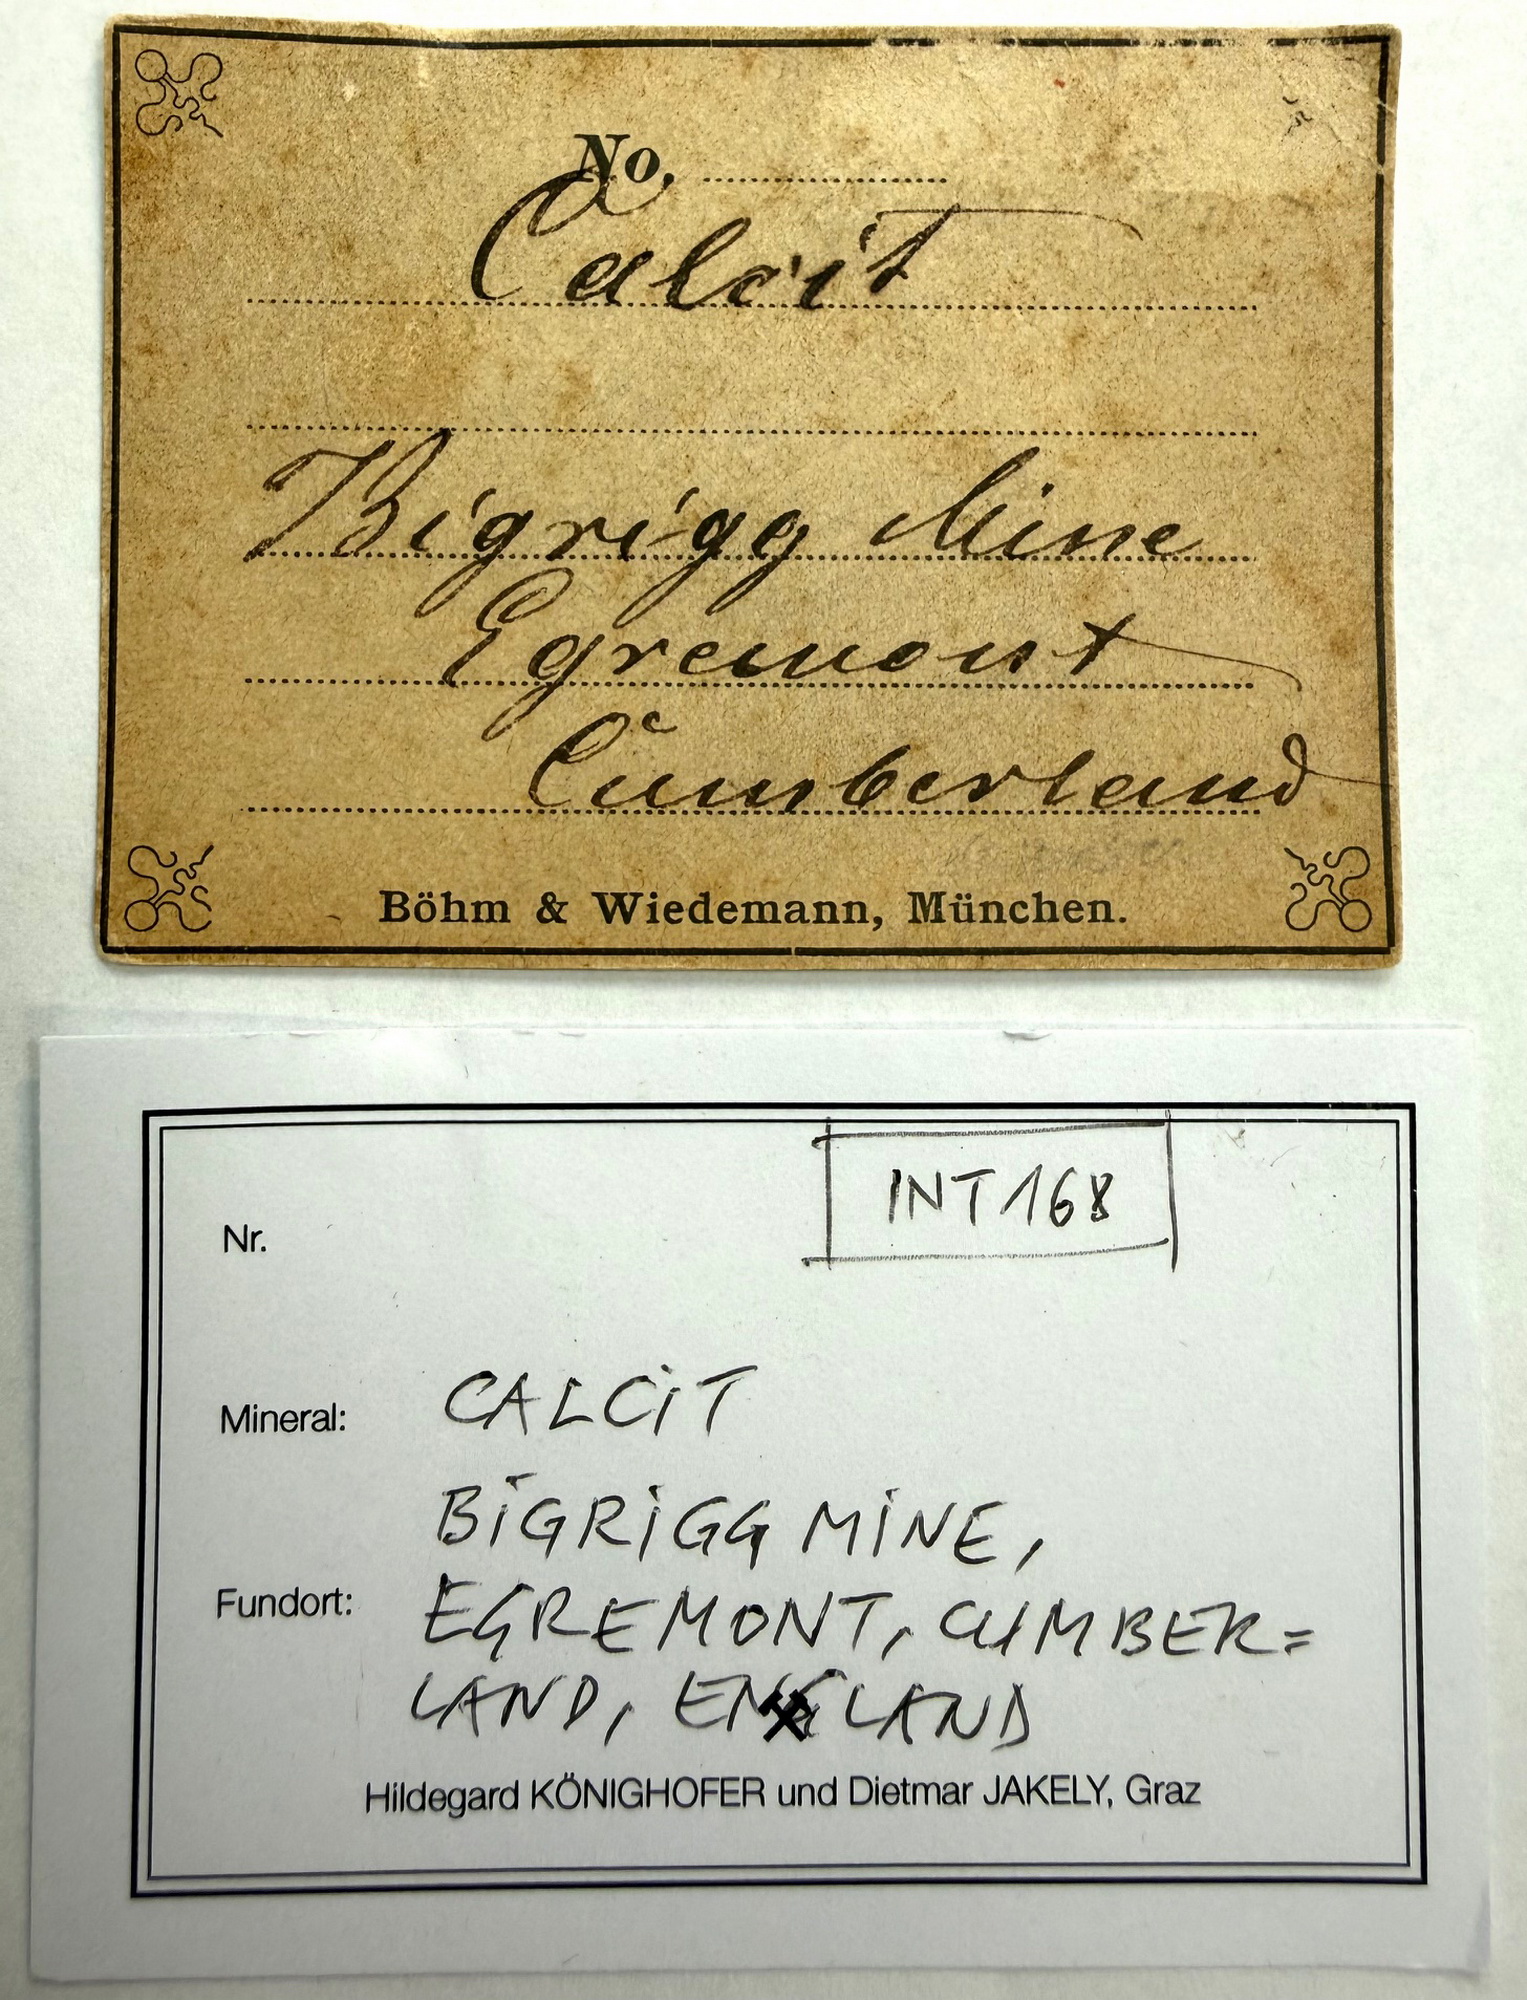 No.
Calcit
Bigrigg Mine
Egremont
Cumberland
Böhm & Wiedemann, München.
INT 168
Nr.
Mineral: CALCIT
BIGRIGG MINE,
Fundort: EGREMONT, CUMBER=
LAND, ENGLAND
Hildegard KÖNIGHOFER und Dietmar JAKELY, Graz